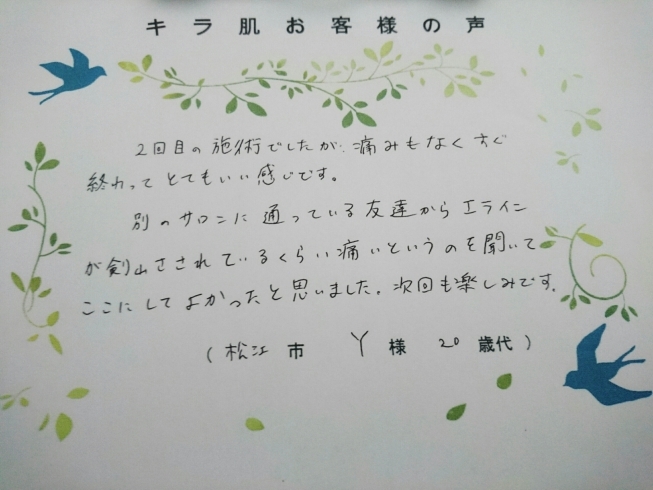 キラ肌お客様の声
2回目の施術でしたが、痛みもなくすぐ
終わってとてもいい感じです。
別のサロンに通っている友達からIライン
が剣山さされているくらい痛いというのを聞いて
ここにしてよかったと思いました。次回も楽しみです。
(松江市 Y様 20歳代)